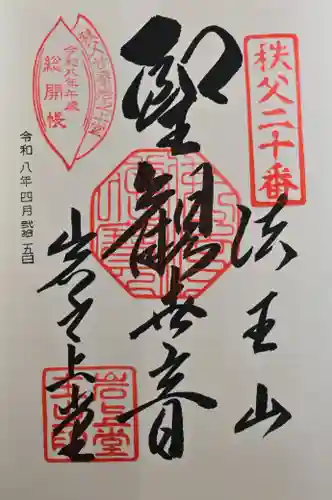 秩父二十番
法王山
聖観世音
岩之上堂
令和八年午歳
総開帳
令和八年四月弐拾五日
岩上堂